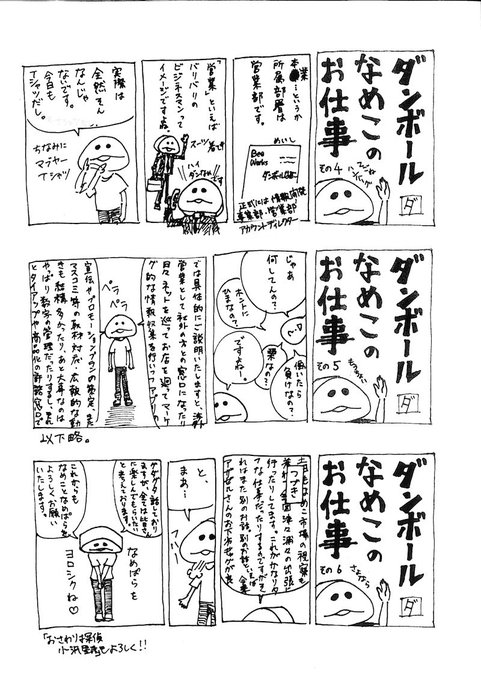 ダンボール
なめこの
お仕事
その4
ダ
本業…というか
所属部署は
営業部です。
めいし
Bee
Works
正式には情報開発
事業部・営業部
アカウントディレクター
「営業」といえば
バリバリの
ビジネスマンって
イメージですよね。
スーツ着て
ハイ
実際は
全然そん
なんじゃ
ないです。
今日も
Tシャツだし。
ちなみに
マブヤー
Tシャツ
ダンボール
なめこの
お仕事
その5
ダ
じゃあ
何してんの?
ホントに
ヒマなの?
ですよねー。
働いたら
負けなの?
では具体的にご説明いたしますと、渉外
営業として社外の方との窓口になったり
日々ネットを巡ってお店を廻ってマーケ
グ的な情報収集を行いつつアプリの
宣伝やプロモーションプランの策定、また
マスコミ等の取材対応・広報的な動
きも結構多かったり。あと大事なのは
やっぱり数字の管理だったりするし、それ
とタイアップや商品化の許諾窓口で
ペラ
ペラ
以下略。
ダンボール
なめこの
お仕事
その6
さよなら
ダ
土日もなめこ市場の視察を
つづき
兼ねて全国津々浦々の出張
行ったりしてます。これがかなりタ
フな仕事だったりするのですがそ
れはまた別のお話。別のお話といえば
と、
まあ…
グダグダ話しており
ますが、全ては皆さん
に楽しんでもらいたい
と考えております。
これからも
なめことなめぱらを
よろしくお願い
いたします。
なめぱらを
ヨロシクね♡
「おさわり探偵
小沢里奈もよろしく!!